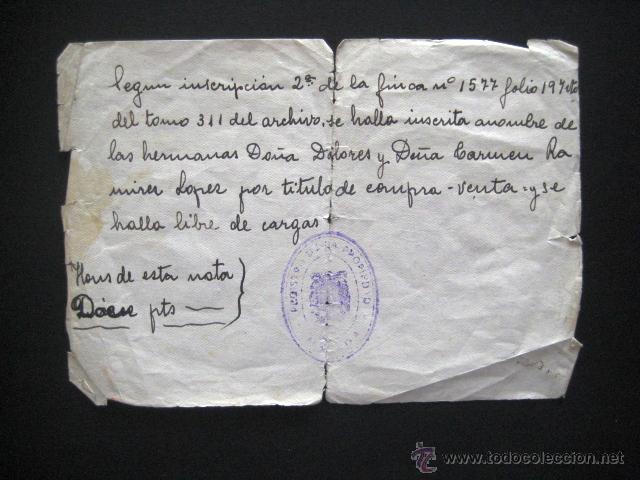 Segun inscripción 2ª de la finca nº 1577 folio 197 vto
del tomo 311 del archivo, se halla inscrita a nombre de
las hermanas Doña Dolores y Doña Carmen Ra
mirez Lopez por titulo de compra-venta y se
halla libre de cargas
Hons de esta nota
pts
REGISTRO DE LA PROPIEDAD
www.todocoleccion.net